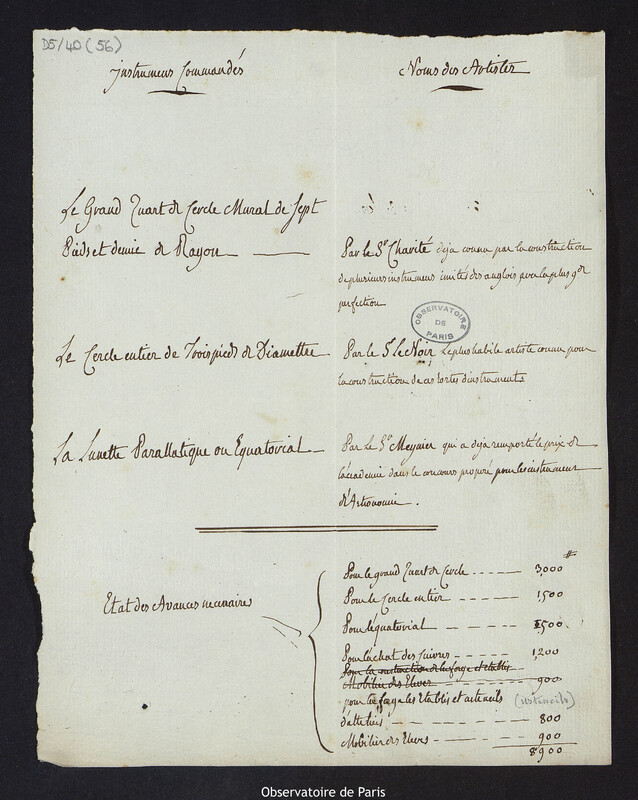 D5/40 (56)
instrumens Commandés
Noms des Artistes
Le Grand Quart de Cercle Mural de Sept
Pieds et demie de Rayon
Par le Sr Charité deja connu par la construction
de plusieurs instrumens imités des anglois pour la plus gde
perfection
OBSERVATOIRE
DE
PARIS
Le Cercle entier de Trois pieds de Diamettre
Par le Sr Le Noir, le plus habile artiste connu pour
la construction de ces sortes d'instruments
La Lunette Parallatique ou Equatorial
Par Le Sr Megnier qui a deja remporté le prix de
l'academie dans le concours proposé pour les instrumens
d'Astronomie.
Etat des Avances necessaires
#
Pour le grand Quart de Cercle ----- 3,000
Pour le Cercle entier ---- 1,500
Pour l'équatorial ----- 1,500
Pour l'achat des Cuivres ---- 1,200
Pour la construction de la forge et etablis
Mobilier des Eleves ------ 900
pour la forge les Etablis et ustencils (ustencils)
d'attelier ------ 800
Mobilier des Eleves ---- 900
8900
Observatoire de Paris